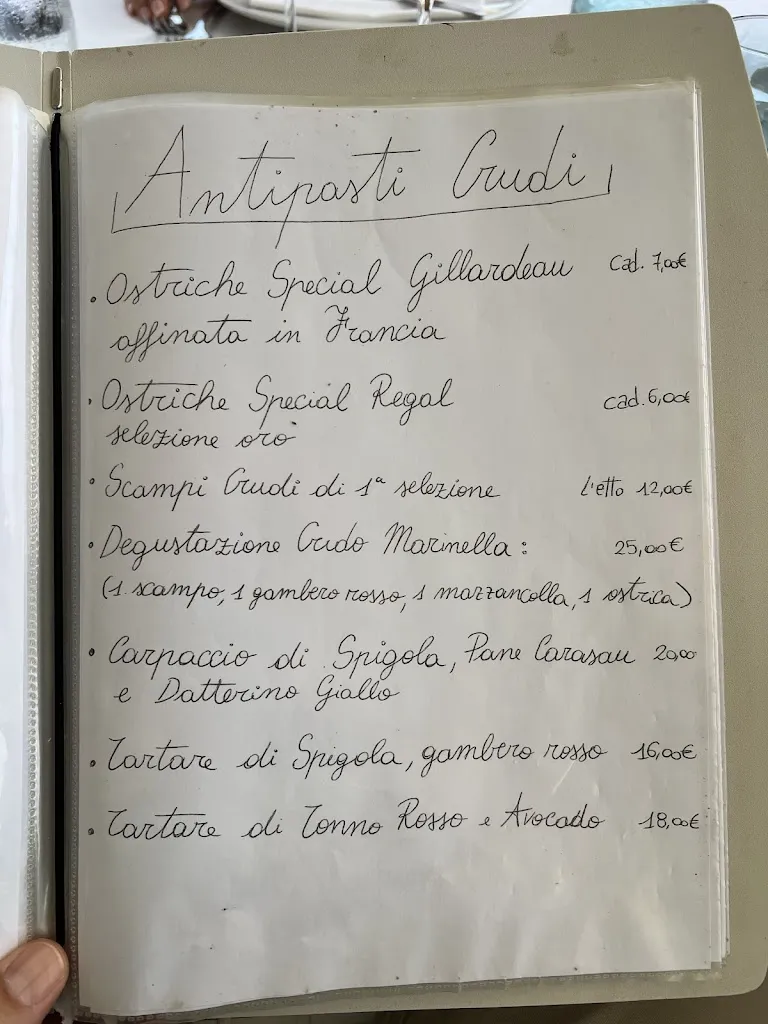 Antipasti Crudi
• Ostriche Special Gillardeau cad. 7,00€
affinata in Francia
• Ostriche Special Regal cad. 6,00€
selezione oro
• Scampi Crudi di 1ª selezione l'etto 12,00€
• Degustazione Crudo Marinella: 25,00€
(1 scampo, 1 gambero rosso, 1 mazzancolla, 1 ostrica)
• Carpaccio di Spigola, Pane Carasau 20,00
e Datterino Giallo
• Tartare di Spigola, gambero rosso 16,00€
• Tartare di Tonno Rosso e Avocado 18,00€